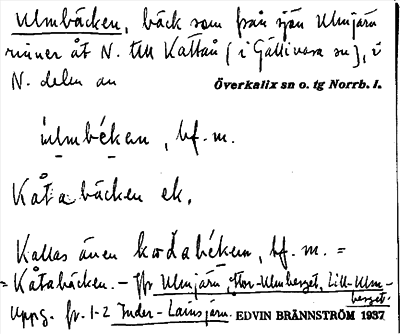 Ulmbäcken, bäck som från sjön Ulmjärn
rinner åt N. till Kattån (i Gällivare sn), i
N. delen av Överkalix sn o. tg Norrb. l.
ùlmbékan, bf. m.
Kåtabäcken ek.
Kallas även kodabékem, bf. m. =
= Kåtabäcken. – Jfr Ulmjärn, Stor-Ulmberget, Lill-Ulm-
berget.
Uppg. fr. 1-2 Inder-Lainsjärn. EDVIN BRÄNNSTRÖM 1937